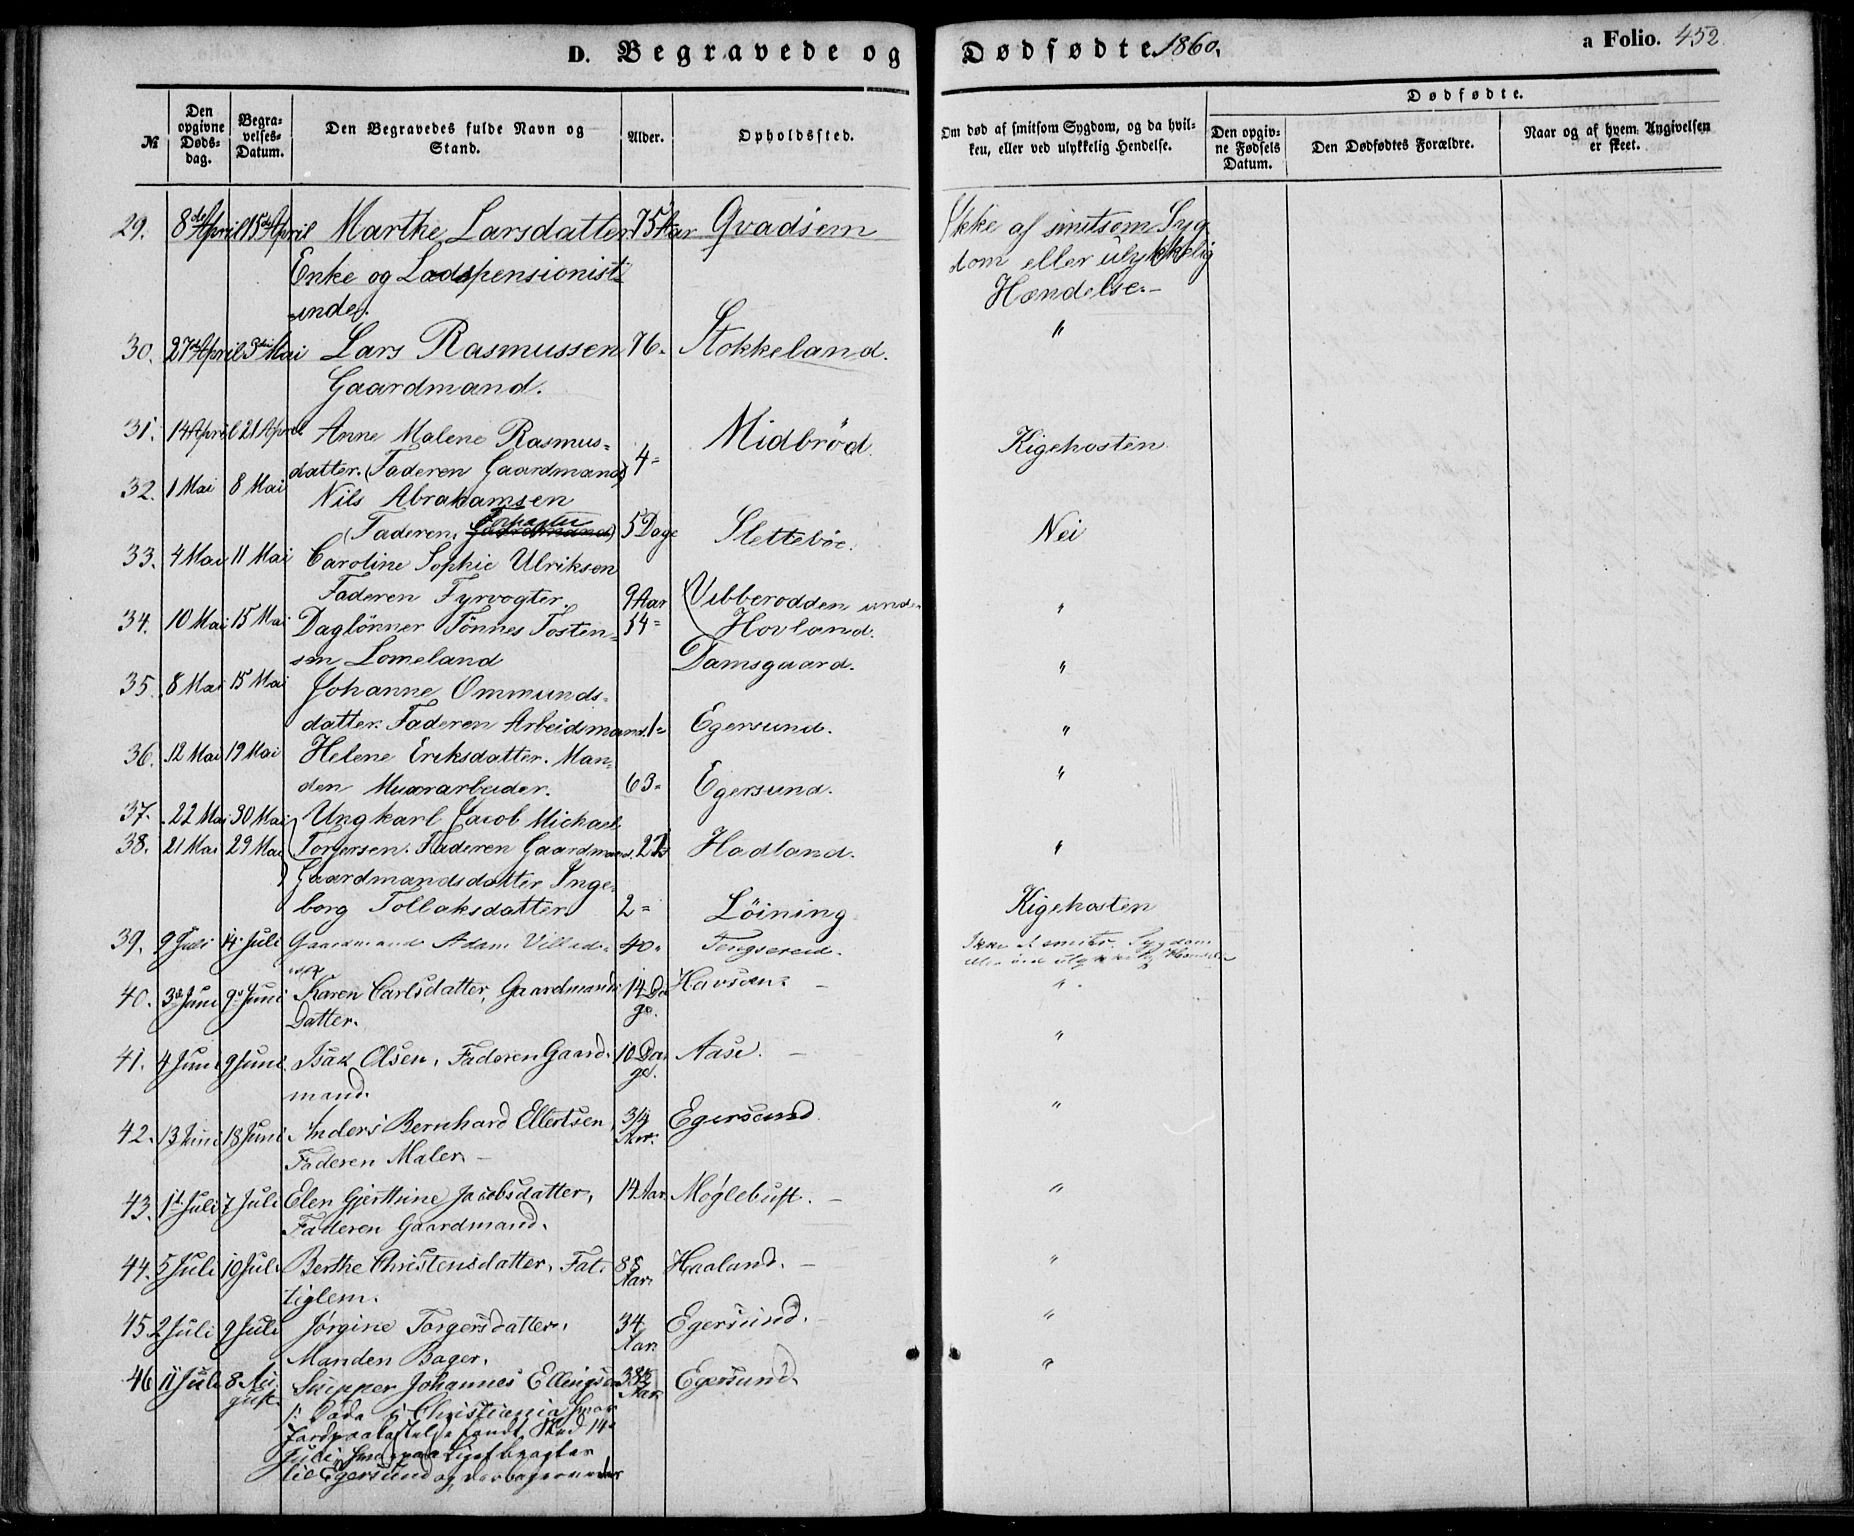 D. Begravede og Dødfødte 1860.
a Folio. 452.
№
Den opgivne Døds-dag.
Begra-velses-Datum.
Den Begravedes fulde Navn og Stand.
Alder.
Opholdssted.
Om død af smitsom Sygdom, og da hvil-ken, eller ved ulykkelig Hendelse.
Dødfødte.
Den opgiv-ne Fødsels Datum.
Den Dødfødtes Forældre.
Naar og af hvem Angivelsen er skeet.
29. 8de April 15de April Marthe Larsdatter 75 Aar Gvadsem Ikke af smitsom Syg
Enke og Ladspensionist- dom eller ulykkelig
inde. Hændelse.-
30. 27de April 3die Mai Lars Rasmussen 76- Stokkeland. "
Gaardmand.
31. 14 April 21 April Anne Malene Rasmus- Midbrød.
datter. (Faderen Gaardmand) 4= Kigehosten
32. 1 Mai 8 Mai Nils Abrahamsen
(Faderen Gaardmand) 5 Dage Slettebøe. Nei
33. 4 Mai 11 Mai Caroline Sophie Ulriksen
Faderen Fyrvogter. 9 Aar (Vibberodden und- "
34. 10 Mai 15 Mai Daglönner Tönnes Tosten- 54= Hovland.
sen Lomeland Damsgaard. "
35. 8 Mai 15 Mai Johanne Ommunds-
datter. Faderen Arbeidsmand. 1= Egersund. "
36. 12 Mai 19 Mai Helene Eriksdatter. Man-
den Murarbeider. 63= Egersund. "
37. 22 Mai 30 Mai Ungkarl Jacob Michael
38. 21 Mai 29 Mai Torgersen. Faderen Gaardmand. Hadland. "
Gaardmandsdatter Inge-
borg Tollaksdatter 2= Löining Kigehosten
39. 9 Juli 14 Juli Gaardmand Adam Villad- 40= Tengsereid. Ikke af smits. Sygdom
sen eller ved ulykkelig Hændelse
40. 3de Juni 9de Juni Karen Carlsdatter, Gaardmands 14 Da- Havsøen. - "
Datter. ge.
41. 4 Juni 9 Juni Isak Olsen, Faderen Gaard- 10 Da- Aase. - "
mand. ge.
42. 13 Juni 18 Juni Anders Bernhard Ellertsen, 3/4 Egersund. "
Faderen Maler - Aar.
43. 1st Juli 7 Juli Elen Gjerthine Jacobsdatter, 14 Aar. Møglebust. - "
Faderen Gaardmand.
44. 5 Juli 10 Juli Berthe Christensdatter, Fat- 88 Haaland. - "
tiglem. Aar.
45. 2 Juli 9 Juli Jørgine Torgersdatter, 34 Egersund. - "
Manden Bager. Aar.
46 11 Juli 8 Au- Skipper Johannes Ellingsen Egersund. "
gust. Aar.
i Christiania
14
Juli Liget
til Egersund og